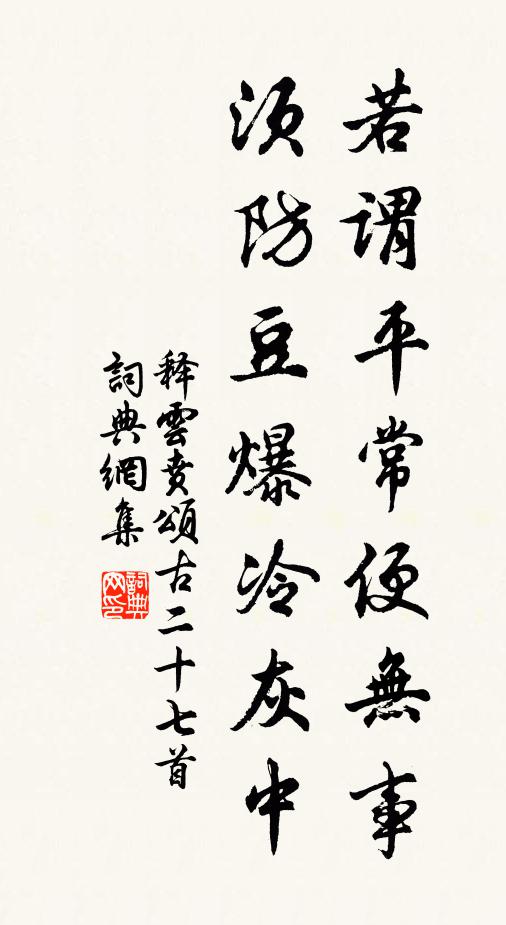 若謂平常便無事
須防豆爆冷灰中
释雲賁頌古二十七首
詞典網集
詞典网印